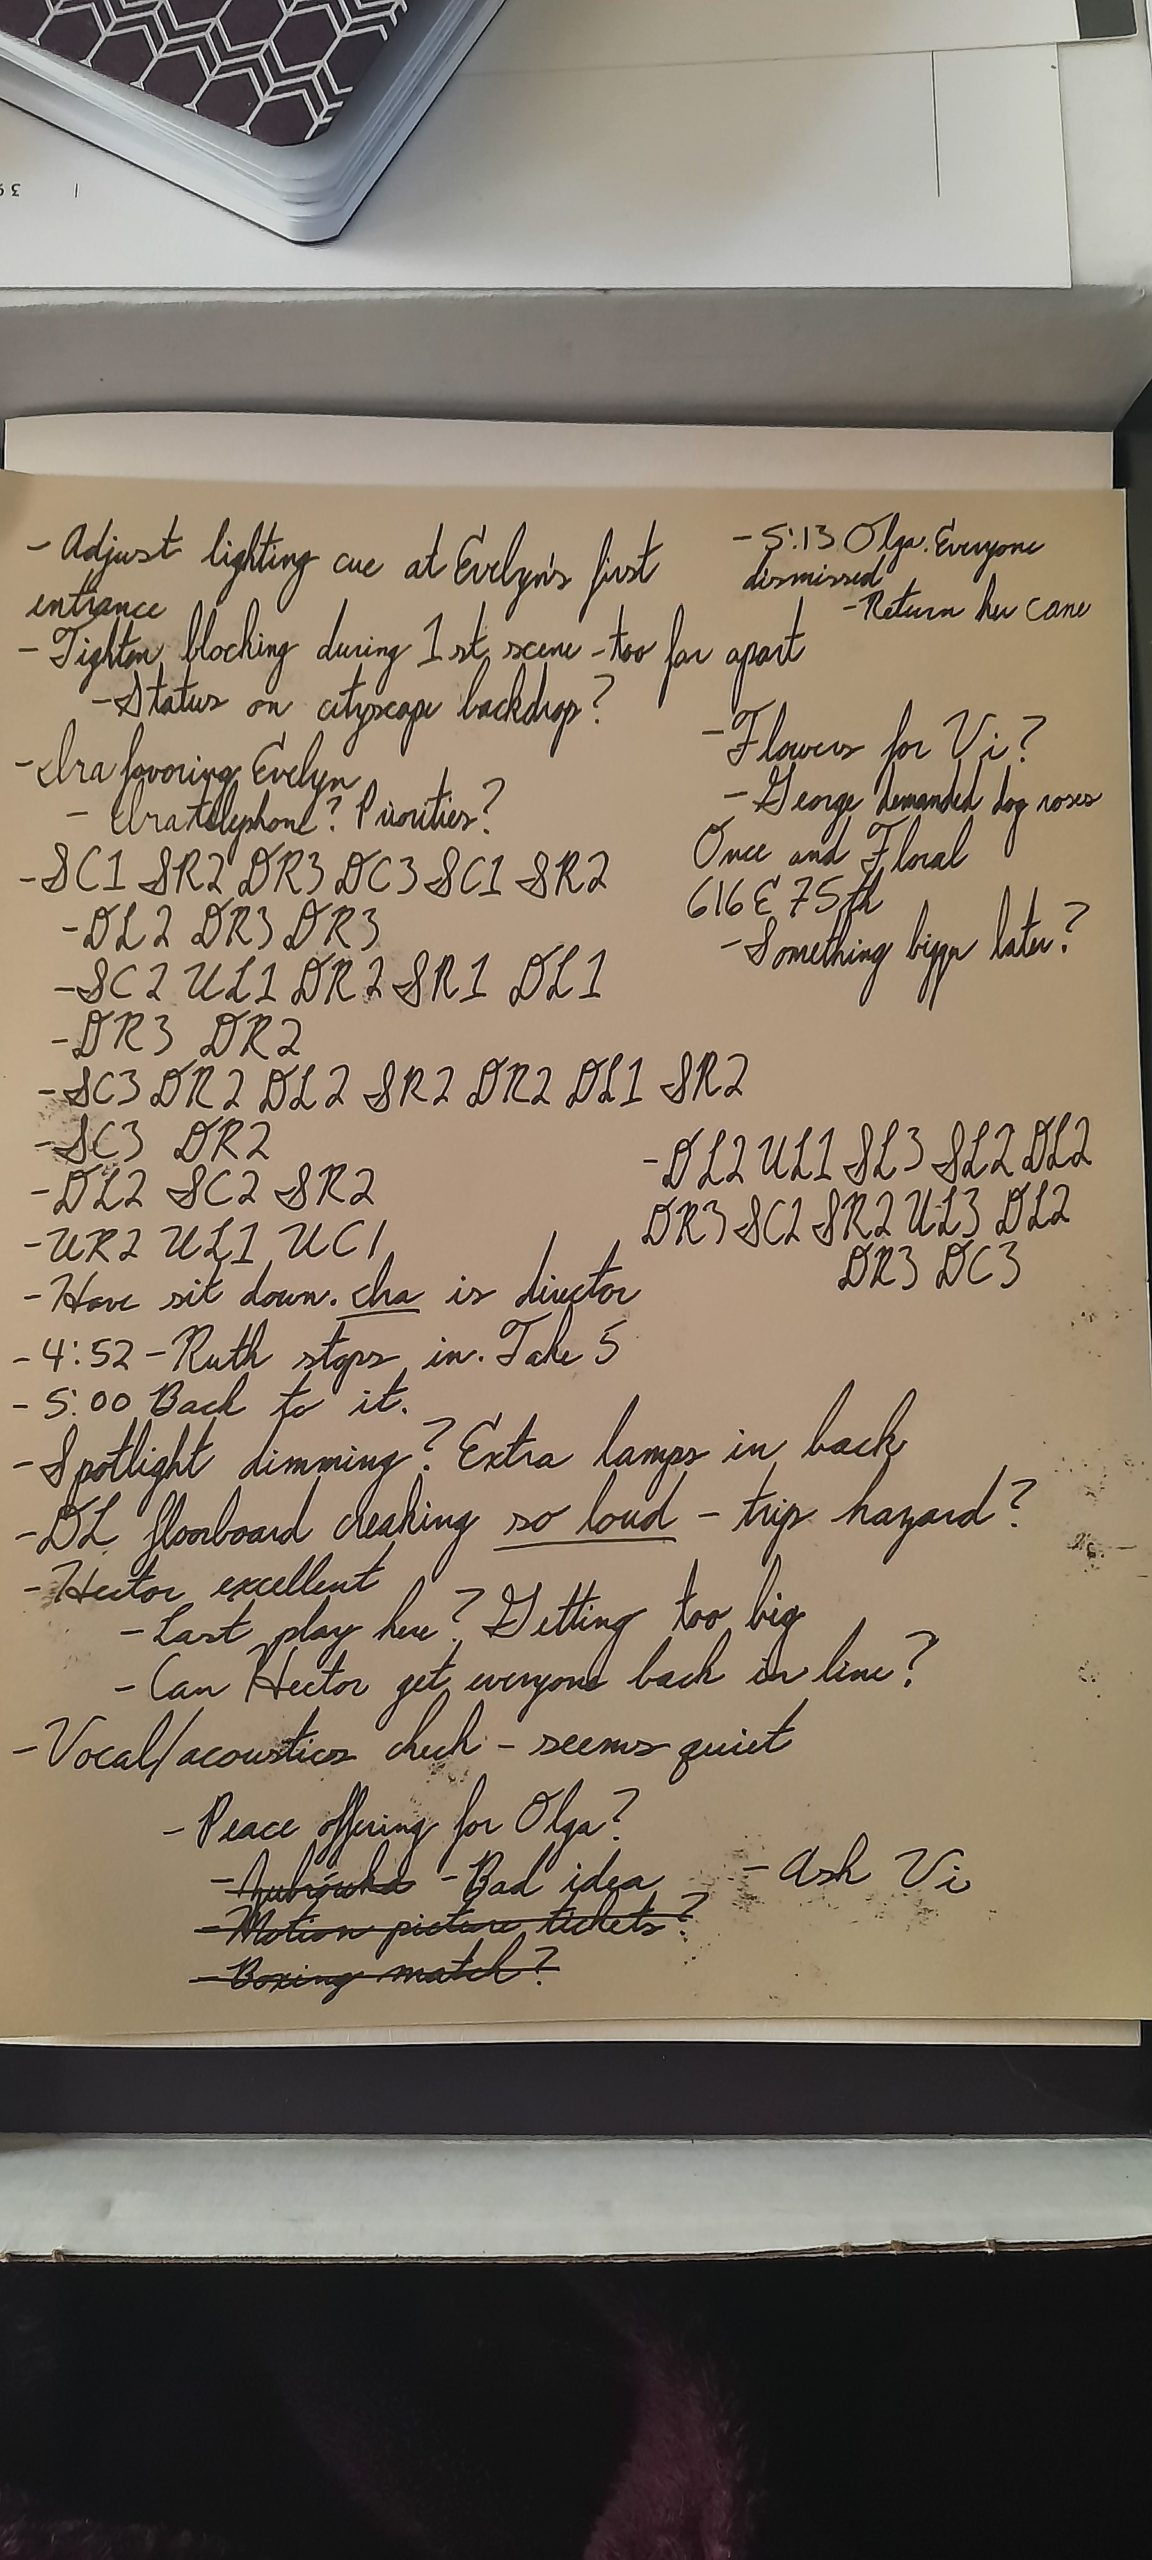 - Adjust lighting cue at Evelyn's first
entrance
- Tighten blocking during 1st scene - too far apart
- Status on cityscape backdrop?
- Ira favoring Evelyn
- Ira telephone? Priorities?
- SC1 SR2 DR3 DC3 SC1 SR2
- DL2 DR3 DR3
- SC2 UL1 DR2 SR1 DL1
- DR3 DR2
- SC3 DR2 DL2 SR2 DR2 DL1 SR2
- SC3 DR2
- DL2 SC2 SR2
- UR2 UL1 UC1
- Have sit down. Ira is director
- 4:52 - Ruth stops in. Take 5
- 5:00 Back to it.
- Spotlight dimming? Extra lamps in back
- DL floorboard creaking so loud - trip hazard?
- Hector excellent
- Last play here? Getting too big
- Can Hector get everyone back in line?
- Vocal/acoustics check - seems quiet
- Peace offering for Olga?
- Żubrówka - Bad idea
- Motion picture tickets?
- Boxing match?
- 5:13 Olga. Everyone
dismissed
- Return her cane
- Flowers for Vi?
- George demanded dog roses
Once and Floral
616 E 75th
- Something bigger later?
- DL2 UL1 SL3 SL2 DL2
DR3 SC2 SR2 UL3 DL2
DR3 DC3
- Ask Vi
39